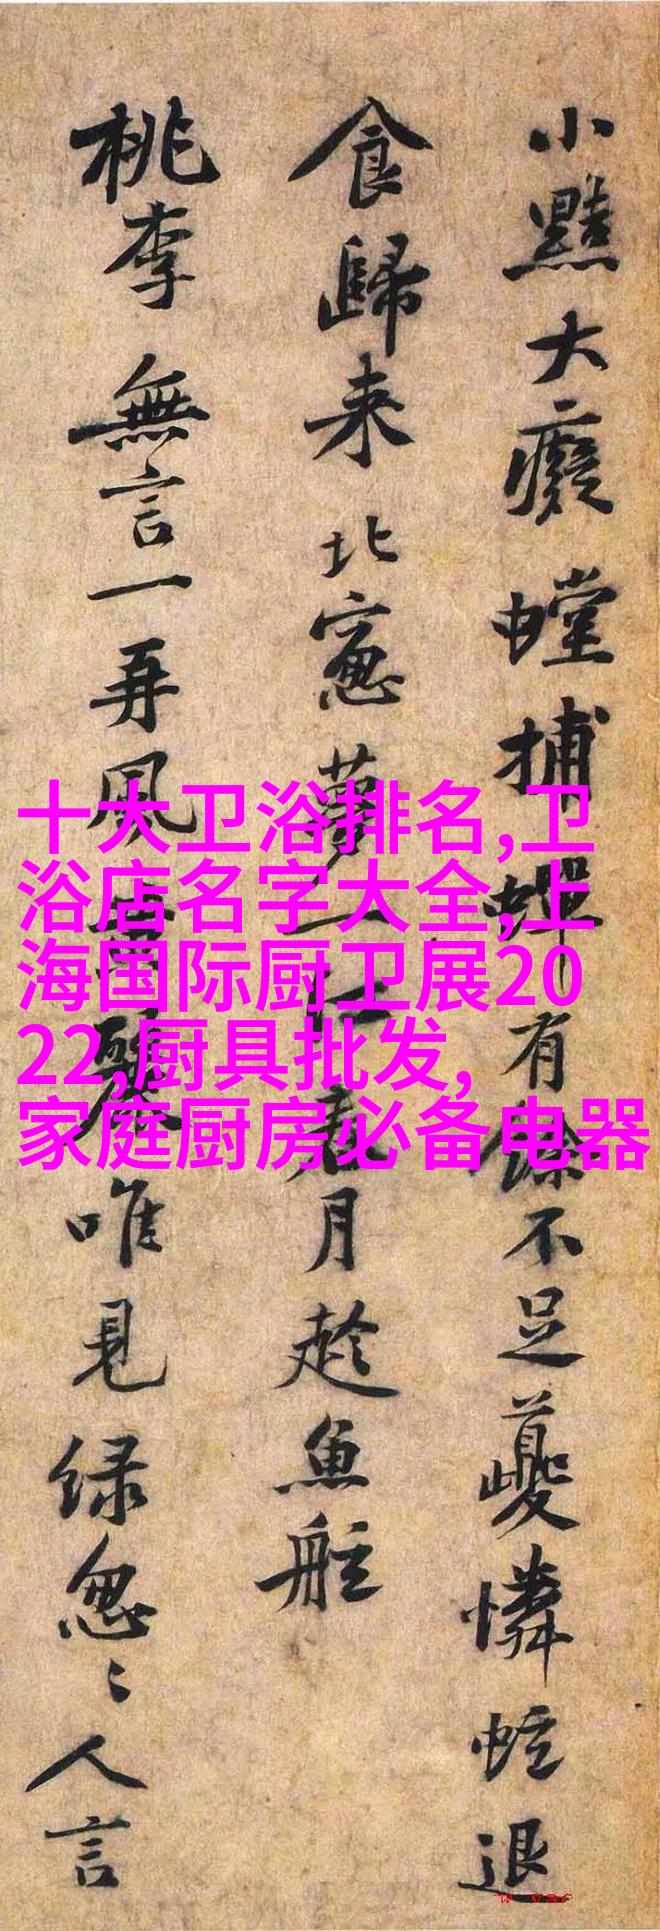 小黠大癡螳捕蟬有餘不足夔憐蚿退
食歸来北窻夢一江春月趁魚舩
桃李無言一再風黄鸝唯見緑怱〻人言
十大卫浴排名,卫
浴店名字大全,上
海国际厨卫展20
22,厨具批发,
家庭厨房必备电器